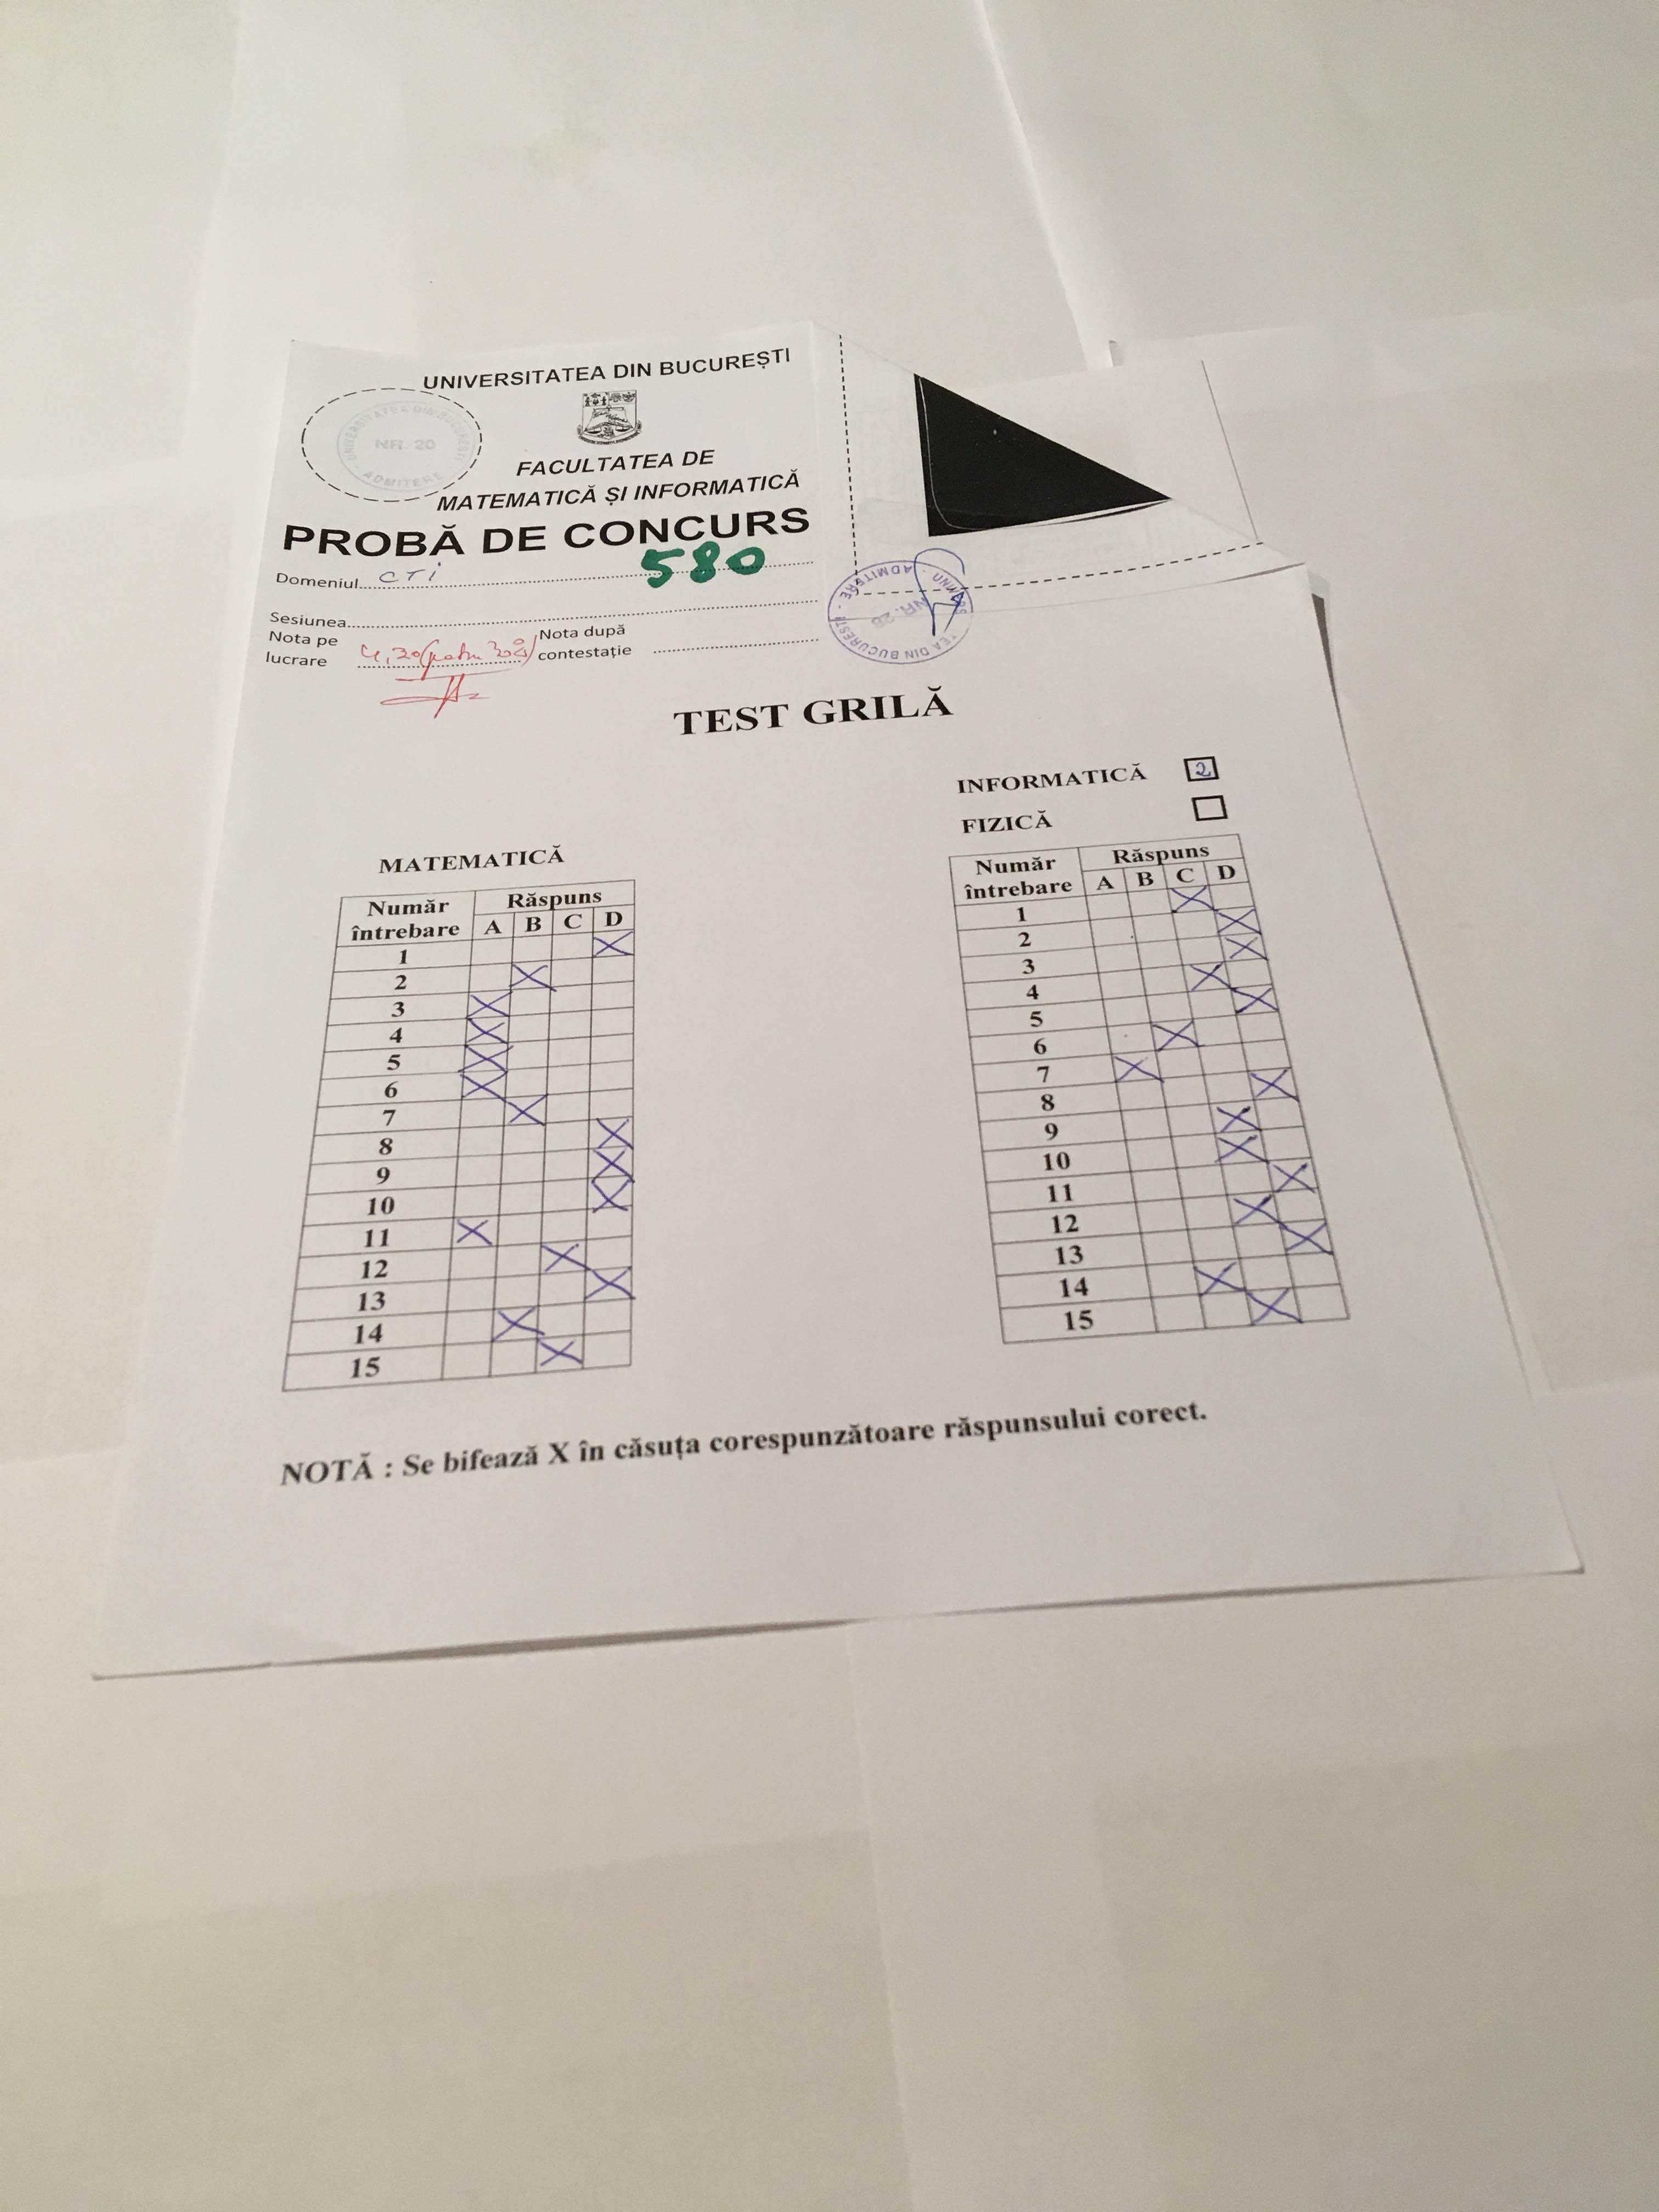 UNIVERSITATEA DIN BUCUREȘTI
UNIVERSITATEA DIN BUCUREȘTI
NR. 20
ADMITERE
FACULTATEA DE
MATEMATICĂ ȘI INFORMATICĂ
PROBĂ DE CONCURS
580
Domeniul CTI
Sesiunea
Nota pe lucrare 4,20 (patru 20)
Nota după contestație
DIN BUCUREȘTI ADMITERE
NR. 26
TEST GRILĂ
INFORMATICĂ 2
FIZICĂ
MATEMATICĂ
Număr întrebare Răspuns
A B C D
1 X
2 X
3 X
4 X
5 X
6 X
7 X
8 X
9 X
10 X
11 X
12 X
13 X
14 X
15 X
Număr întrebare Răspuns
A B C D
1 X
2 X
3 X
4 X
5 X
6 X
7 X
8 X
9 X
10 X
11 X
12 X
13 X
14 X
15 X
NOTĂ : Se bifează X în căsuța corespunzătoare răspunsului corect.